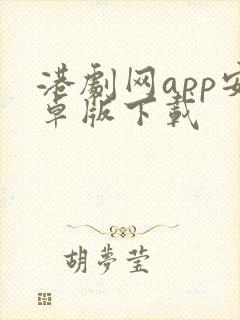 港劇网app安
卓版下載
胡夢莹